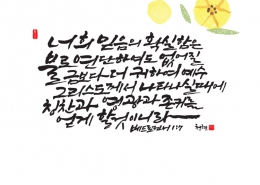 너희 믿음의 확실함은
불로 연단하여도 없어질
금보다 더 귀하여 예수
그리스도께서 나타나실 때에
칭찬과 영광과 존귀를
얻게 할 것이니라
베드로전서 1:7